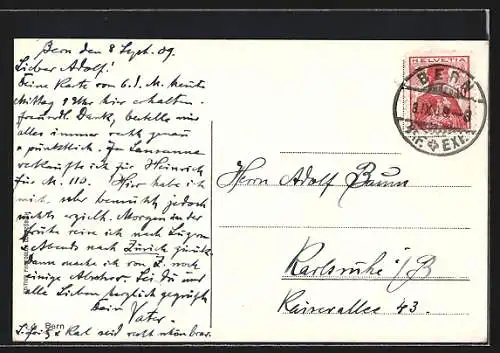 Bern den 8 Sept. 09.
Lieber Adolf!
Deine Karte von 6. d. M. heute
Mittag 1 Uhr hier erhalten.
freundl. Dank, bestelle mir
alles immer recht genau
& pünktlich. In Lausanne
verkaufte ich für Heinrich
für M. 110. Hier habe ich
mich sehr bemüht, jedoch
nichts erzielt. Morgen in der
früh reise ich nach
Abends nach Zürich zurück.
Dann mache ich von Z. noch
einige Abstecher. Sei Du und
alle Lieben herzlich gegrüßt
Dein
Vater.
Karl sind recht
Bern
HELVETIA
BERN
BRF. EXP.
Herrn Adolf Baum
Karlsruhe i/B
Kaiserallee 43.